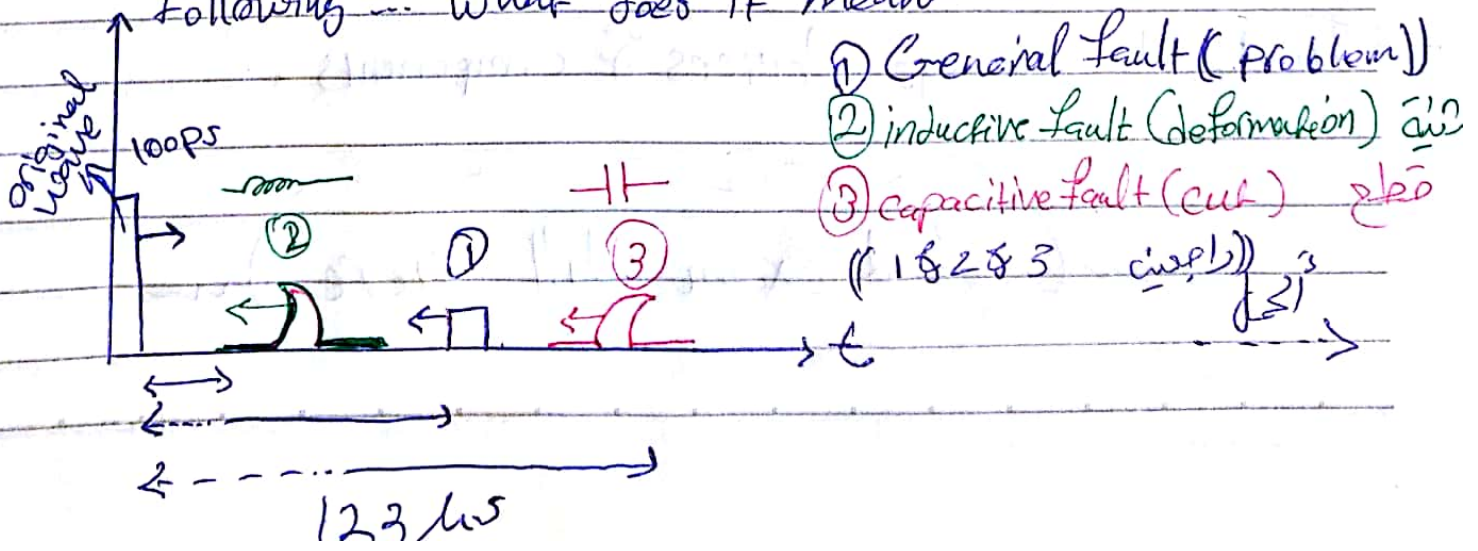 Following ... What does it mean
original wave
100ps
① General fault (( problem ))
② inductive fault (deformation)
③ capacitive fault (cut) قطع
(( 1 & 2 & 3
② ① ③
t
123 μs